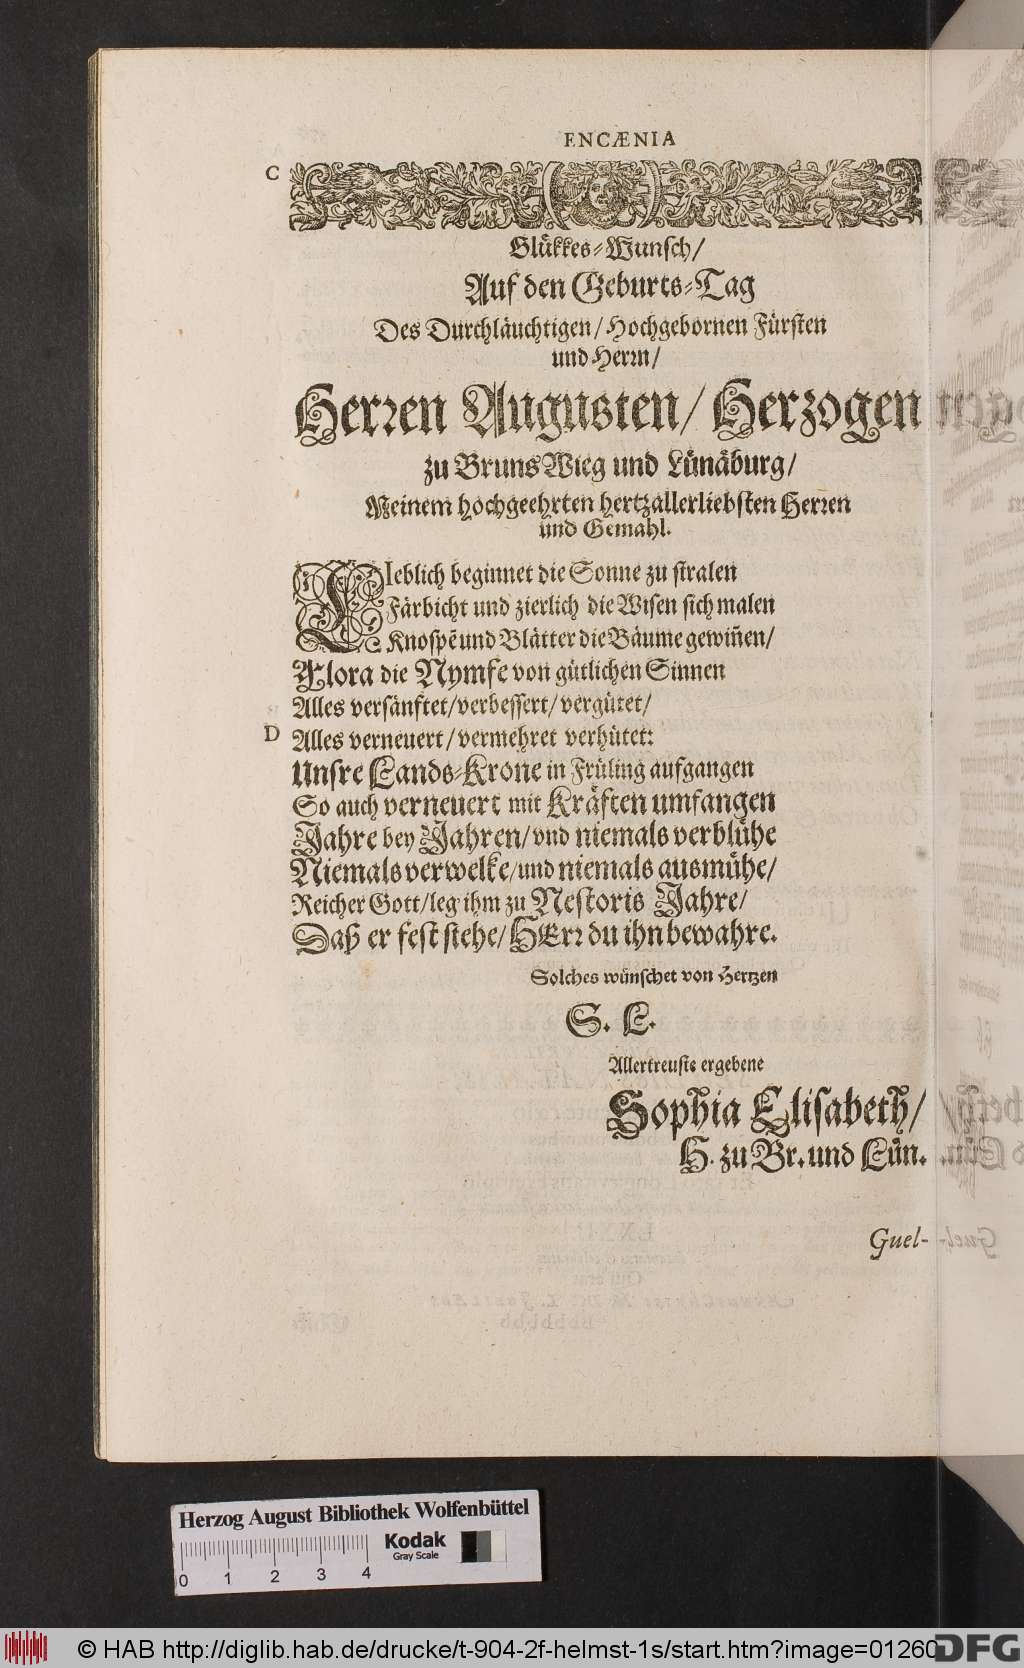 ENCÆNIA
C
Glükkes-Wunsch/
Auf den Geburts-Tag
Des Durchläuchtigen/ Hochgebornen Fürsten
und Herrn/
Herren Augusten/ Herzogen
zu BrunsWieg und Lünäburg/
Meinem hochgeehrten hertzallerliebsten Herren
und Gemahl.
LIeblich beginnet die Sonne zu stralen
Färbicht und zierlich die Wisen sich malen
Knospẽ und Blätter die Bäume gewiñen/
Flora die Nymfe von gütlichen Sinnen
Alles versänftet/ verbessert/ vergütet/
D Alles verneuert/ vermehret verhütet:
Unsre Lands-Krone in Früling aufgangen
So auch verneuert mit Kräften umfangen
Jahre bey Jahren/ vnd niemals verblühe
Niemals verwelke/ und niemals ausmühe/
Reicher Gott/ leg ihm zu Nestoris Jahre/
Daß er fest stehe/ HErr du ihn bewahre.
Solches wünschet von Hertzen
S. L.
Allertreuste ergebene
Sophia Elisabeth/
H. zu Br. und Lün.
Guel-
Herzog August Bibliothek Wolfenbüttel
Kodak
Gray Scale
0 1 2 3 4
© HAB http://diglib.hab.de/drucke/t-904-2f-helmst-1s/start.htm?image=01260
DFG